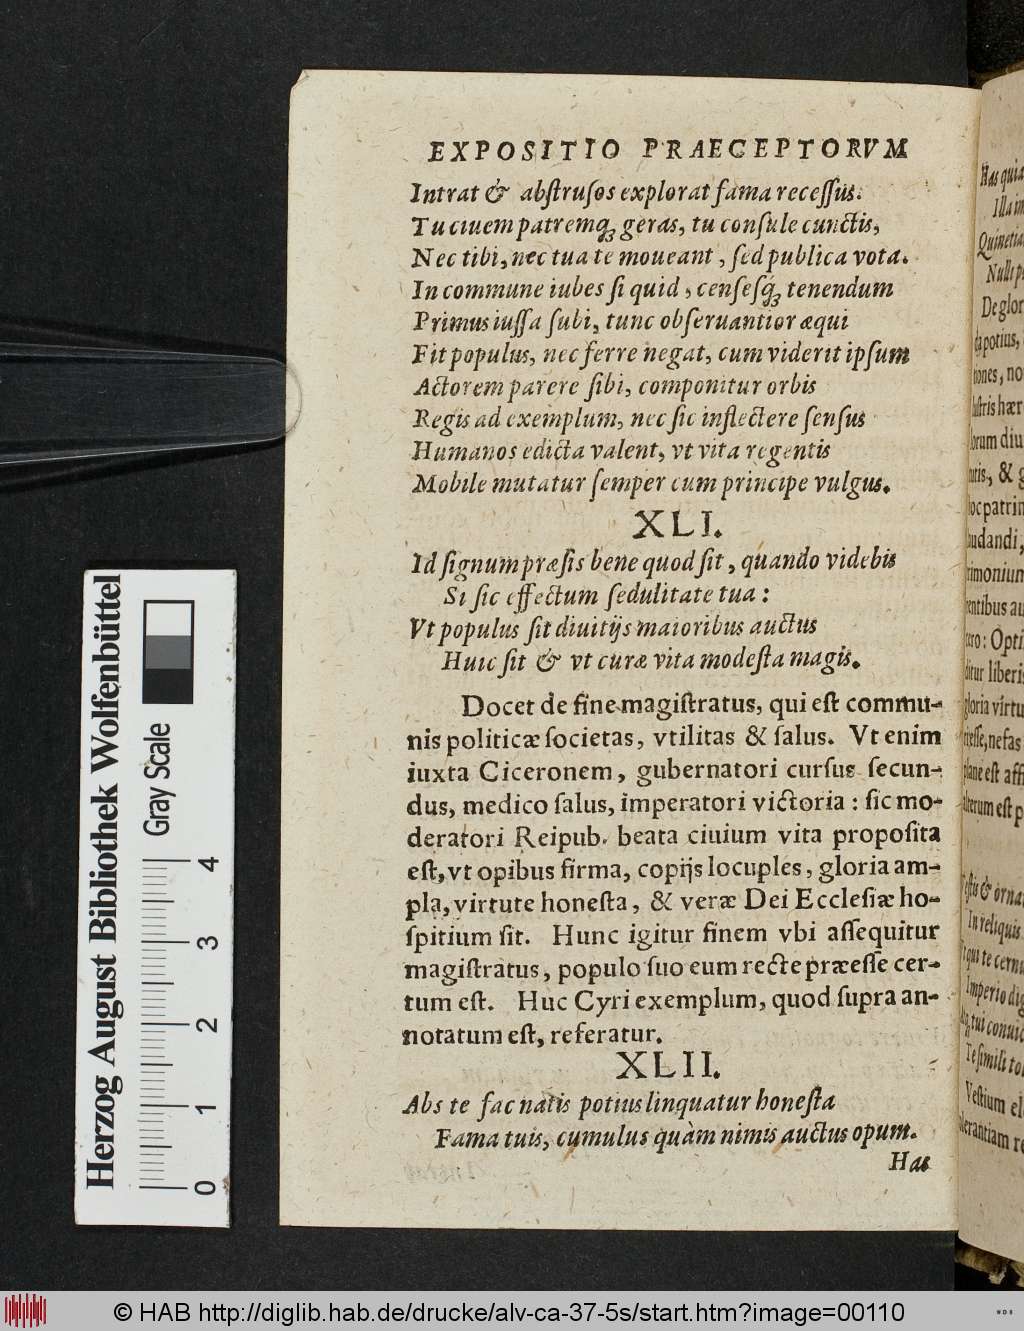 EXPOSITIO PRAECEPTORVM
Intrat & abſtruſos explorat fama receſſus.
Tu ciuem patremq́ꝫ geras, tu conſule cunctis,
Nec tibi, nec tua te moueant, ſed publica vota.
In commune iubes ſi quid, cenſeſq́ꝫ tenendum
Primus iuſſa ſubi, tunc obſeruantior æqui
Fit populus, nec ferre negat, cum viderit ipſum
Actorem parere ſibi, componitur orbis
Regis ad exemplum, nec ſic inflectere ſenſus
Humanos edicta valent, vt vita regentis
Mobile mutatur ſemper cum principe vulgus.
XLI.
Id ſignum præſis bene quod ſit, quando videbis
Si ſic effectum ſedulitate tua:
Vt populus ſit diuitijs maioribus auctus
Huic ſit & vt curæ vita modeſta magis.
Docet de fine magiſtratus, qui eſt commu-
nis politicæ ſocietas, vtilitas & ſalus. Vt enim
iuxta Ciceronem, gubernatori curſus ſecun-
dus, medico ſalus, imperatori victoria: ſic mo-
deratori Reipub. beata ciuium vita propoſita
eſt, vt opibus firma, copijs locuples, gloria am-
pla, virtute honeſta, & veræ Dei Eccleſiæ ho-
ſpitium ſit. Hunc igitur finem vbi aſſequitur
magiſtratus, populo ſuo eum recte præeſſe cer-
tum eſt. Huc Cyri exemplum, quod ſupra an-
notatum eſt, referatur.
XLII.
Abs te fac natis potius linquatur honeſta
Fama tuis, cumulus quàm nimis auctus opum.
Has
Has quia
Quinetia
De glor
potius,
iones, no
& g
imperio dig
Te ſimili to
Veſtium el
Herzog August Bibliothek Wolfenbüttel
Gray Scale
0 1 2 3 4
© HAB http://diglib.hab.de/drucke/alv-ca-37-5s/start.htm?image=00110